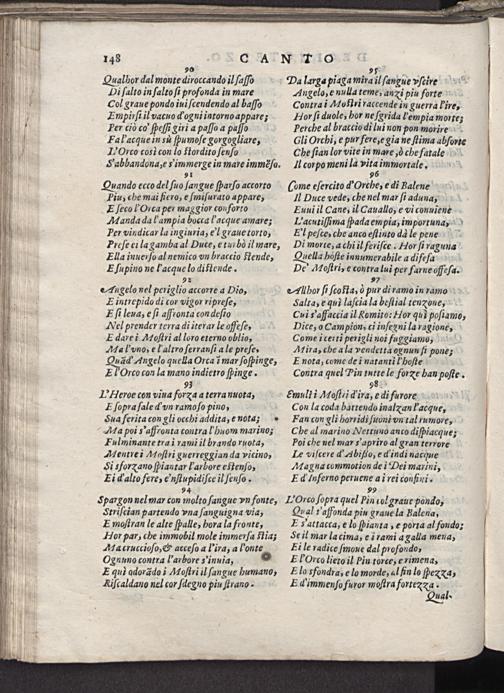 148
CANTO
90
Qualhor dal monte diroccando il sasso
Di salto in salto si profonda in mare
Col graue pondo iui scendendo al basso
Empirsi il vacuo d'ogni intorno appare;
Per ciò co' spessi giri a passo a passo
Fa l'acque in sù spumose gorgogliare,
L'Orco così con lo stordito senso
S'abbandona, e s'immerge in mare immẽso.
91
Quando ecco del suo sangue sparso accorto
Più, che mai fiero, e smisurato appare,
E seco l'Orca per maggior conforto
Manda da l'ampia bocca l'acque amare;
Per vindicar la ingiuria, e'l graue torto,
Prese ei la gamba al Duce, e turbò il mare,
Ella inuerso al nemico vn braccio stende,
E supino ne l'acque lo distende.
92
Angelo nel periglio accorre a Dio,
E intrepido di cor vigor riprese,
E si leua, e si affronta con desio
Nel prender terra di iterar le offese,
E dare i Mostri al loro eterno oblio,
Ma l'vno, e l'altro serransi a le prese,
Quãd'Angelo quella Orca ì mar sospinge,
E l'Orco con la mano indietro spinge.
93
L'Heroe con viua forza a terra nuota,
E sopra sale d'vn ramoso pino,
Sua ferita con gli occhi addita, e nota;
Ma poi s'affronta contra l'huom marino;
Fulminante tra i rami il brando ruota,
Mentre i Mostri guerreggian da vicino,
Si sforzano spiantar l'arbore estenso,
Ei d'alto fere, e'nstupidisce il senso.
94
Spargon nel mar con molto sangue vn fonte,
Striscian partendo vna sanguigna via,
E mostran le alte spalle, hora la fronte,
Hor par, che immobil mole immersa stia;
Ma cruccioso, & acceso a l'ira, a l'onte
Ognuno contra l'arbore s'inuia,
E quì odorãdo i Mostri il sangue humano,
Riscaldano nel cor sdegno più strano.
95
Da larga piaga mira il sangue vscire
Angelo, e nulla teme, anzi più forte
Contra i Mostri raccende in guerra l'ire,
Hor si duole, hor ne sgrida l'empia morte;
Perche al braccio di lui non pon morire
Gli Orchi, e pur fere, e gia ne stima absorte
Che stian lor vite in mare, ò che fatale
Il corpo meni la vita immortale.
96
Come esercito d'Orche, e di Balene
Il Duce vede, che nel mar si aduna,
Euui il Cane, il Cauallo, e vi conuiene
L'acutissima spada empia, importuna,
E'l pesce, che anco estinto dà le pene
Di morte, a chi il ferisce. Hor si raguna
Quella hoste innumerabile a difesa
De' Mostri, e contra lui per farne offesa.
97
Allhor si scosta, ò pur di ramo in ramo
Salta, e quì lascia la bestial tenzone,
Cui s'affaccia il Romito: Hor quì posiamo,
Dice, o Campion, ci insegni la ragione,
Come i certi perigli noi fuggiamo,
Mira, che a la vendetta ognun si pone;
E nota, come de i natanti l'hoste
Contra quel Pin tutte le forze han poste.
98
Emuli i Mostri d'ira, e di furore
Con la coda battendo inalzan l'acque,
Fan con gli horridi suoni vn tal rumore,
Che al marino Nettuno anco dispiacque;
Poi che nel mar s'aprìro al gran terrore
Le viscere d'Abisso, e d'indi nacque
Magna commotion de i Dei marini,
E d'Inferno peruene a i rei confini.
99
L'Orco sopra quel Pin col graue pondo,
Qual s'affonda più graue la Balena,
E s'attacca, e lo spianta, e porta al fondo;
Se il mar la cima, e i rami a galla mena,
Ei le radice smoue dal profondo,
E l'Orco lieto il Pin torce, e rimena,
E lo sfondra, e lo morde, al fin lo spezza,
E d'immenso furor mostra fortezza.
Qual-